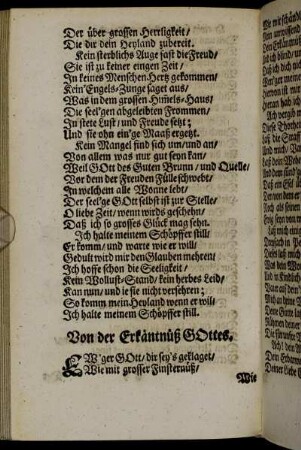 Der über grossen Herrligkeit/
Die dir dein Heyland zubereit.
Kein sterblichs Auge fast die Freud/
Sie ist zu keiner engen Zeit/
In keines Menschen Hertz gekommen/
Kein Engels-Zunge saget aus/
Was in dem grossen Him̃els-Haus/
Die seel'gen abgeleibten Frommen/
In stete Lust/ und Freude setzt;
Und sie ohn ein'ge Maaß ergetzt.
Kein Mangel find sich um/ und an/
Von allem was nur gut seyn kan/
Weil GOtt des Guten Brunn/ und Quelle/
Vor dem der Freuden Fülle schwebt/
In welchem alle Wonne lebt/
Der seel'ge GOtt selbst ist zur Stelle/
O liebe Zeit/ wenn wirds geschehn/
Daß ich so grosses Glück mag sehn.
Ich halte meinem Schöpffer still/
Er komm/ und warte wie er will/
Gedult wird mir den Glauben mehren/
Ich hoffe schon die Seeligkeit/
Kein Wollust-Stand/ kein herbes Leid/
Kan nun/ und je sie nicht versehren;
So komm mein Heyland wenn er will/
Ich halte meinem Schöpffer still.
Von der Erkäntnüß GOttes.
EW'ger GOtt/ dir sey's geklaget/
Wie mit grosser Finsternüß/
Wie